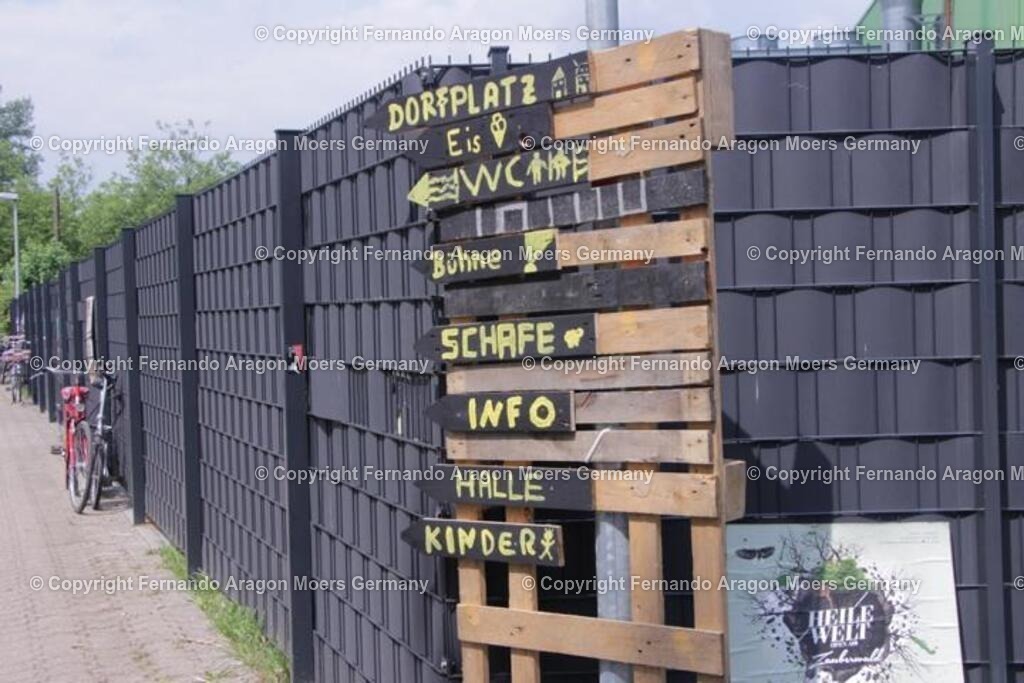 DORFPLATZ
Eis
WC
Bühne
SCHAFE
INFO
HALLE
KINDER
HEILE
WELT
OPEN AIR
Zauberwald
© Copyright Fernando Aragon Moers Germany © Copyright Fernando Aragon Moers Germany
© Copyright Fernando Aragon Moers Germany © Copyright Fernando Aragon Moers Germany © Copyright Fernando Aragon Moers Germany
© Copyright Fernando Aragon Moers Germany © Copyright Fernando Aragon Moers Germany
© Copyright Fernando Aragon Moers Germany © Copyright Fernando Aragon Moers Germany © Copyright Fernando Aragon Moers Germany
© Copyright Fernando Aragon Moers Germany © Copyright Fernando Aragon Moers Germany
© Copyright Fernando Aragon Moers Germany © Copyright Fernando Aragon Moers Germany © Copyright Fernando Aragon Moers Germany